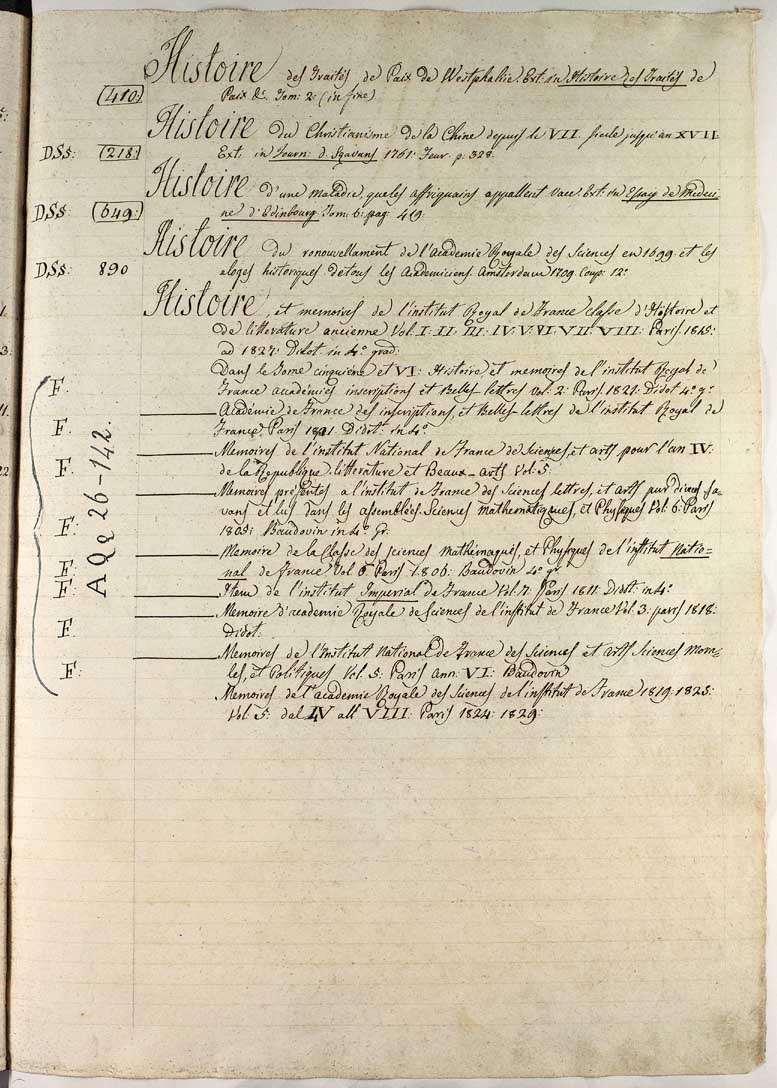 Histoire des Traités de Paix de Westphalie. Ext. in Histoire des Traités de
410: Paix &c. Tom: 2: (in fine)
Histoire du Christianisme de la Chine depuis le VII. siecle jusqu'an XVII.
DSs: 218: Ext: in Journ: d. Sçavans 1761: Fevr. p: 328.
Histoire d'une maladie, que les affriquains appallent Ext. in Essay de Medeci-
DSs 649: ne d'Edinbourg Tom: 6: pag: 419.
Histoire du ronouvellament de l'Academie Royale des Sciences en 1699. et les
DSs: 890 eloges historiques de tous les Academiciens Amsterdam 1709. Coup: 12°
Histoire, et memoires de l'institut Royal de France classe d'Histoire et
de litterature ancienne Vol. I: II: III: IV: V: VI: VII: VIII: Paris 1815:
ad 1827: Didot in 4.° grad:
Dans le Tome cinquiéme et VI: Histoire et memoires de l'institut Royal de
F. France académies inscriptions et Belles-lettres Vol. 2: Paris 1821: Didot 4.° gr.
Académie de France des inscriptions, et Belles-lettres de l'institut Royal de
F. France. Paris 1821. Didot: in 4.°
Memoires de l'institut National de France de Sciences, et arts pour l'an IV:
F. de la Republique, litterature et Beaux-arts Vol. 5:
Memoires présentés a l'institut de France des Sciences lettres, et arts par divers sa-
vans et lus dans les assemblés. Sciences mathematiques, et Physiques Vol. 6: Paris
F: 1805: Baudovin in 4.° Gr.
AQq 26-142.
Memoire de la Classe des sciences mathémaques, et Physiques de l'institut Natio-
F. nal de France Vol 6. Paris 1806: Baudovin 4.° gr.
F: Item de l'institut Imperial de France Vol. 7: Paris 1811: Didot: in 4.°
Memoire d'academie Royale de Sciences de l'institut de France Vol. 3: paris 1818:
F. Didot.
Memoires de l'Institut National de France des Sciences et arts Sciences Mora-
F: les, et Politiques Vol. 5: Paris ann: VI: Baudovin
Memoires de l'academie Royale des Sciences de l'institut de France 1819: 1825:
Vol. 5: dal IV all VIII: Paris 1824: 1829: